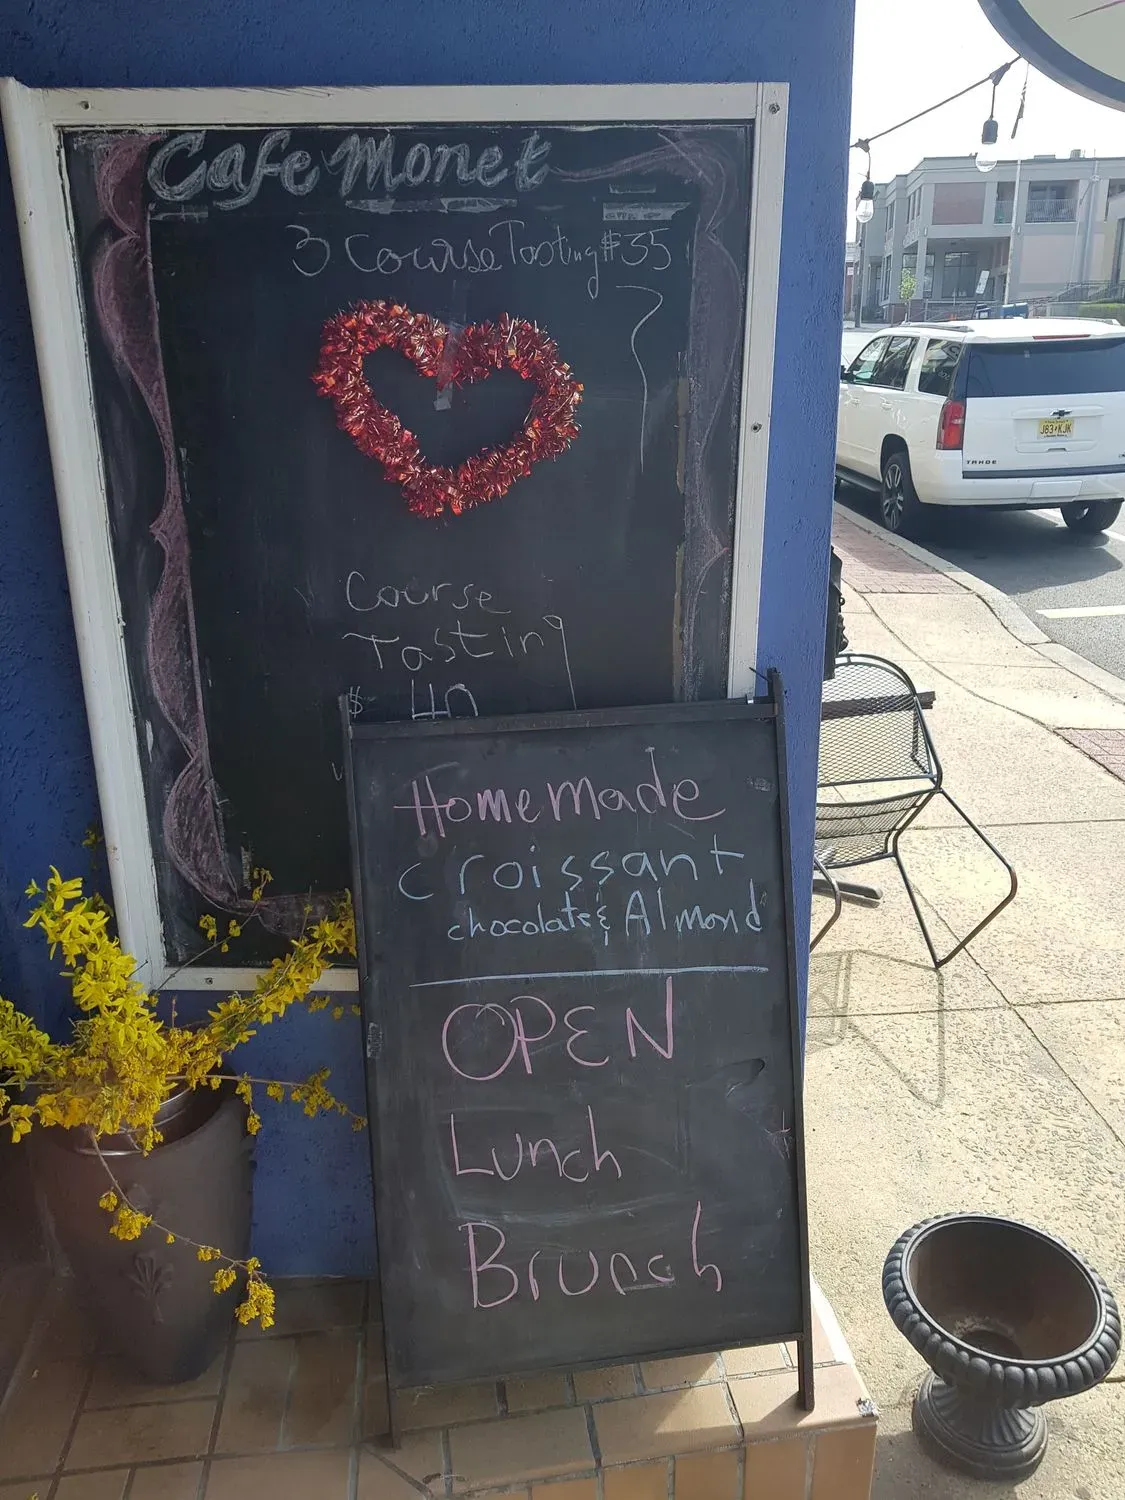 Cafe Monet
3 Course Tasting $35
Course
Tasting
$ 40
Homemade
croissant
chocolate & Almond
OPEN
Lunch
Brunch
J83·KJK
TAHOE